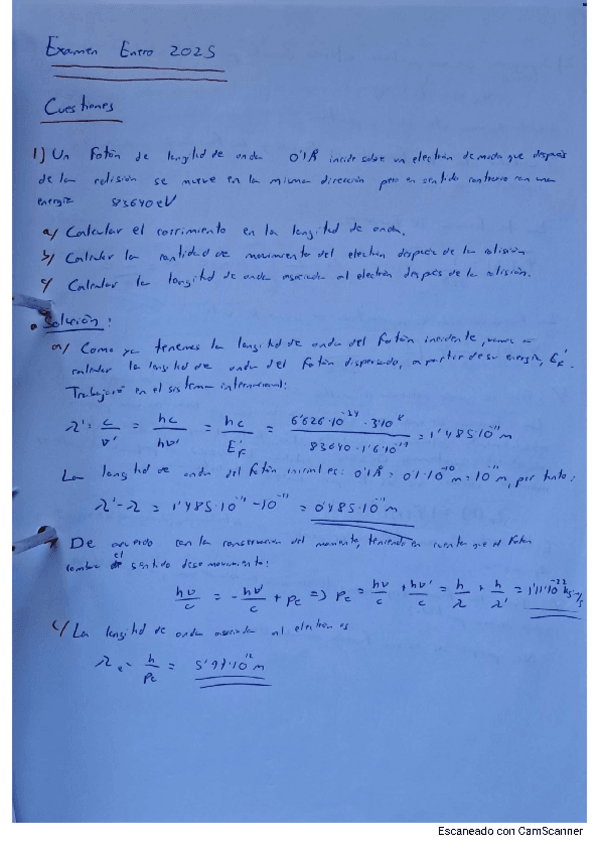 Examen Enero 2025
Cuestiones
1) Un fotón de longitud de onda 0'1Å incide sobre un electrón de modo que después
de la colisión se mueve en la misma dirección pero en sentido contrario con una
energía 83640 eV
a) Calcular el corrimiento en la longitud de onda.
b) Calcular la cantidad de movimiento del electrón después de la colisión
c) Calcular la longitud de onda asociada al electrón después de la colisión.
• Solución:
a) Como ya tenemos la longitud de onda del fotón incidente, vamos a
calcular la longitud de onda del fotón dispersado, a partir de su energía, E'_F.
Trabajaré en el sistema internacional:
λ' = c/ν' = hc/hν' = hc/E'_F = 6'626·10^-34 · 3·10^8 / 83640·1'6·10^-19 = 1'485·10^-11 m
La longitud de onda del fotón inicial es: 0'1Å = 0'1·10^-10 m = 10^-11 m, por tanto:
λ' - λ = 1'485·10^-11 - 10^-11 = 0'485·10^-11 m
De acuerdo con la conservación del momento, teniendo en cuenta que el fotón
cambia el sentido de su movimiento:
hν/c = - hν'/c + pe => pe = hν/c + hν'/c = h/λ + h/λ' = 1'11·10^-22 kg·m/s
c) La longitud de onda asociada al electrón es
λe = h/pe = 5'97·10^-12 m
Escaneado con CamScanner